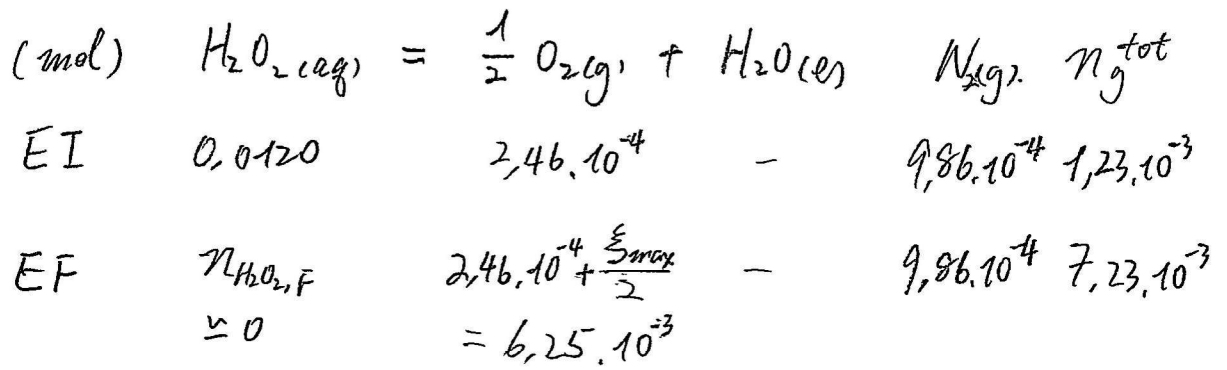 (mol) H₂O₂(aq) = 1/2 O₂(g) + H₂O(l) N₂(g) n_g^tot
EI 0,0120 2,46.10⁻⁴ - 9,86.10⁻⁴ 1,23.10⁻³
EF n_H₂O₂,F 2,46.10⁻⁴ + ξmax/2 - 9,86.10⁻⁴ 7,23.10⁻³
≃ 0 = 6,25.10⁻³